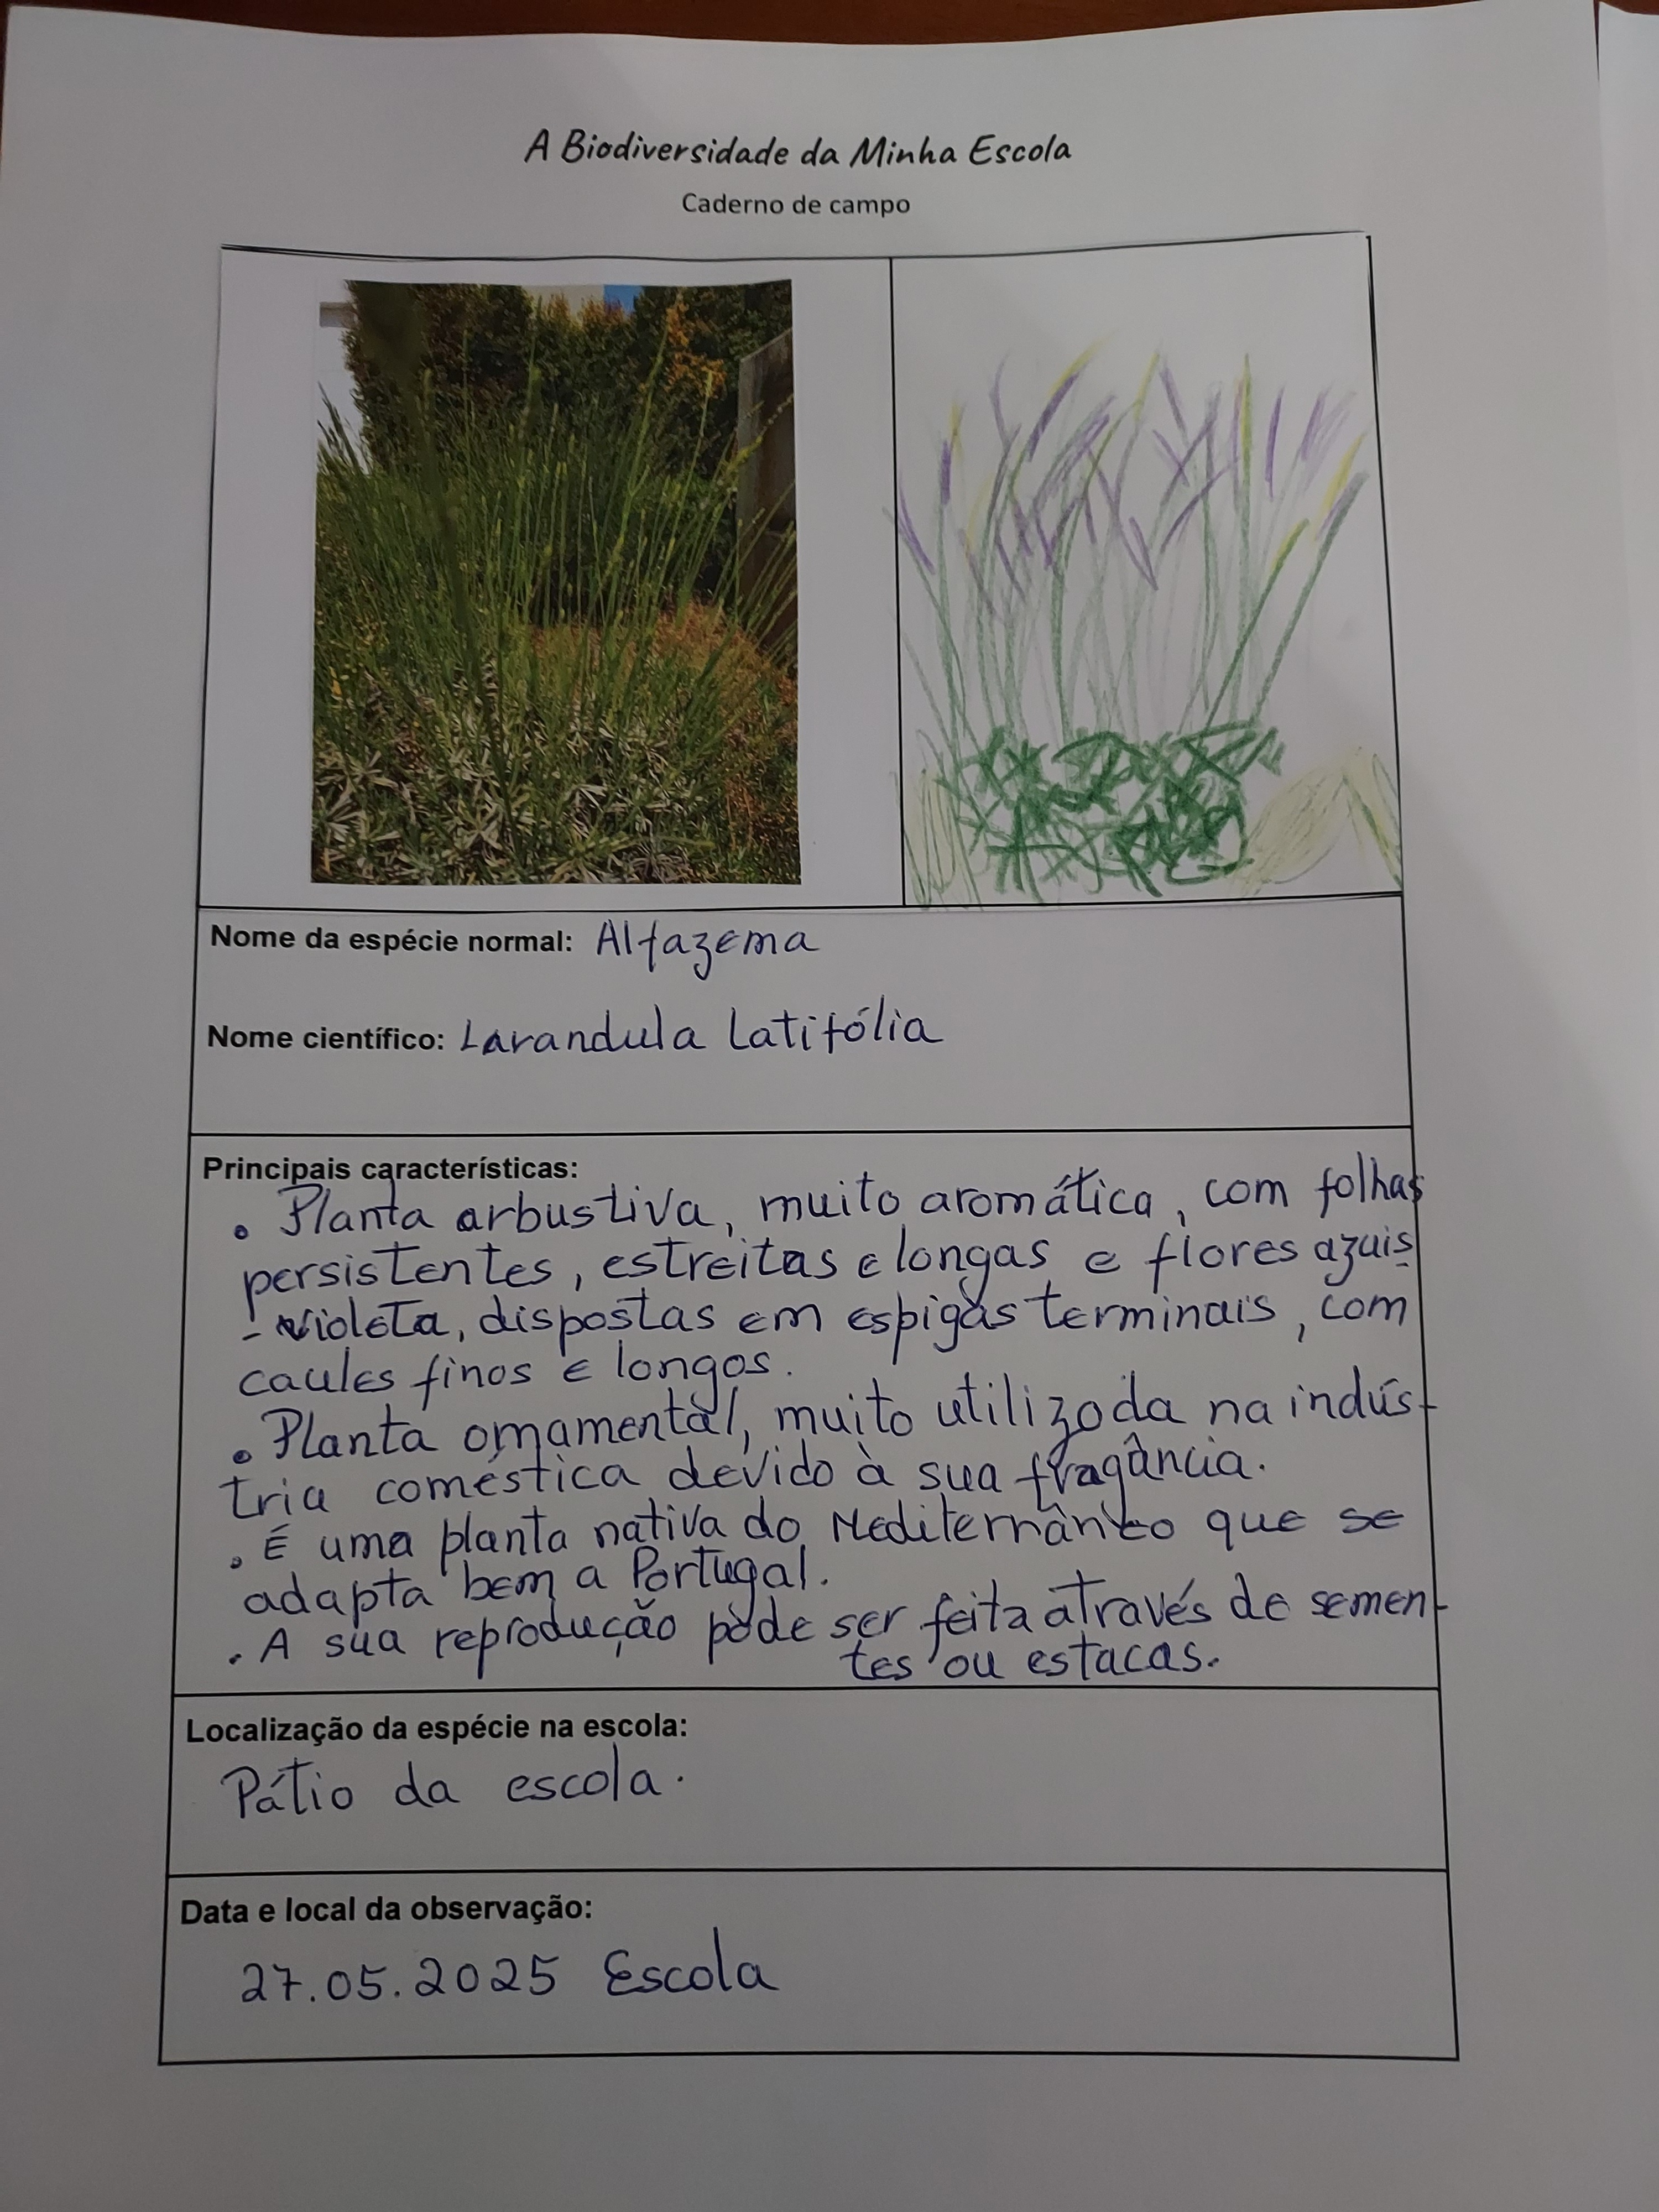 A Biodiversidade da Minha Escola
Caderno de campo
Nome da espécie normal: Alfazema
Nome científico: Lavandula Latifólia
Principais características:
• Planta arbustiva, muito aromática, com folhas
persistentes, estreitas e longas e flores azuis
- violeta, dispostas em espigas terminais, com
caules finos e longos.
• Planta ornamental, muito utilizada na indús-
tria coméstica devido à sua fragância.
• É uma planta nativa do Mediterrâneo que se
adapta bem a Portugal.
• A sua reprodução pode ser feita através de semen-
tes ou estacas.
Localização da espécie na escola:
Pátio da escola.
Data e local da observação:
27.05.2025 Escola